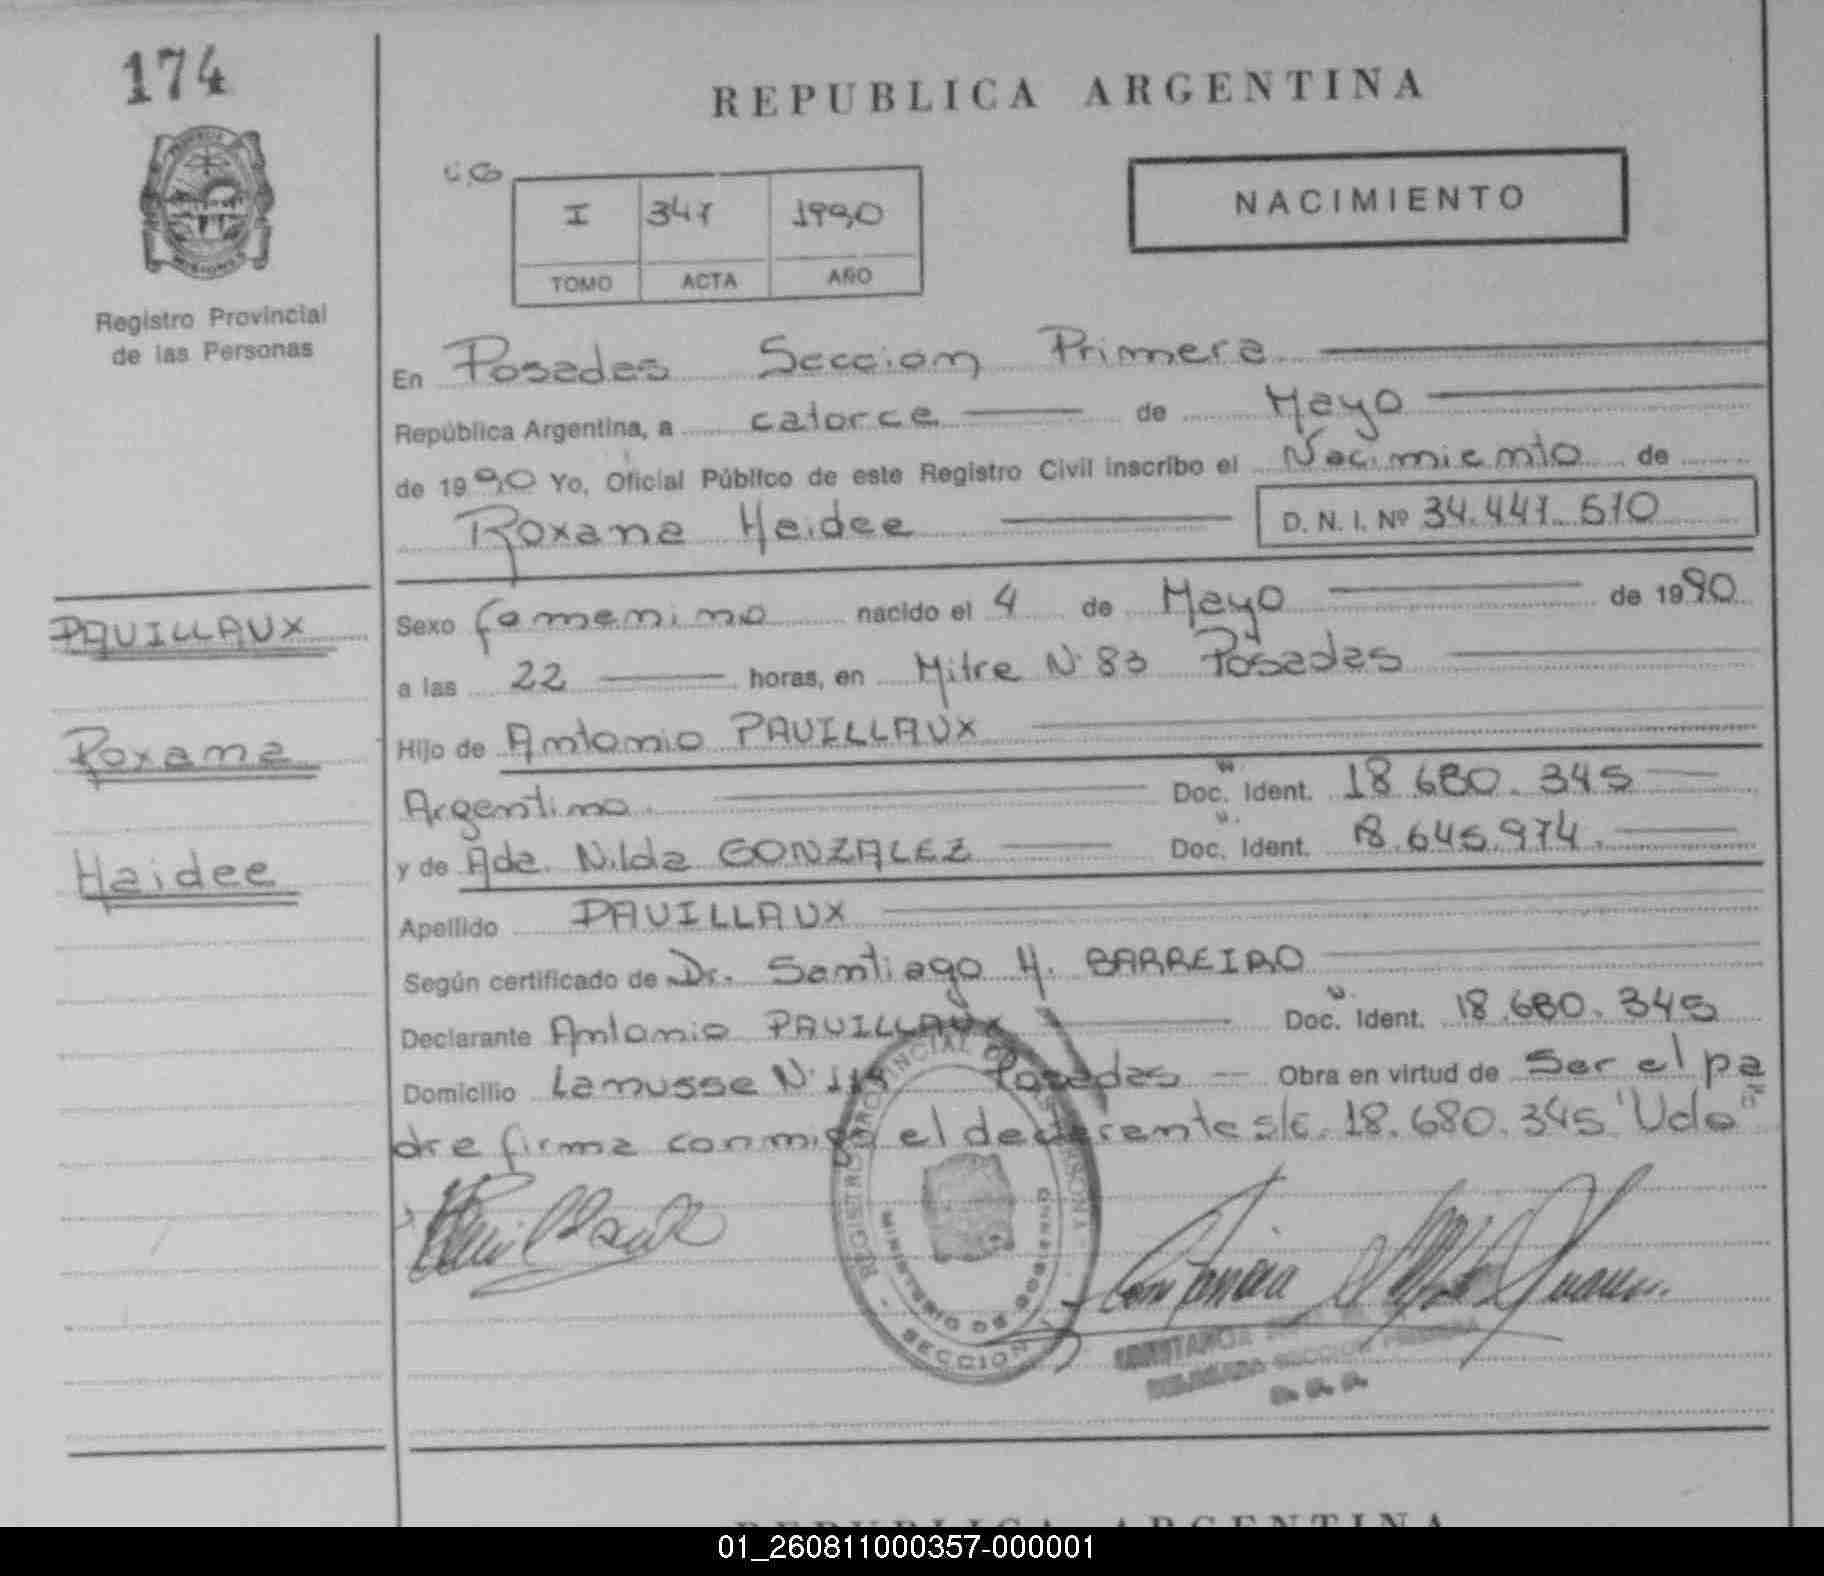 174
REPUBLICA ARGENTINA
I 347 1990
TOMO ACTA AÑO
NACIMIENTO
MISIONES
Registro Provincial
de las Personas
En Posadas Sección Primera
República Argentina, a catorce de Mayo
de 1990 Yo, Oficial Público de este Registro Civil inscribo el Nacimiento de
Roxana Haidee D. N. I. Nº 34.447.510
PAUILLAUX
Roxana
Haidee
Sexo femenino nacido el 4 de Mayo de 1990
a las 22 horas, en Mitre N° 83 Posadas
Hijo de Antonio PAUILLAUX
Argentino Doc. Ident. 18.680.345
y de Ada Nilda GONZALEZ Doc. Ident. 18.645.974
Apellido PAUILLAUX
Según certificado de Dr. Santiago H. BARREIRO
Declarante Antonio PAUILLAUX Doc. Ident. 18.680.345
Domicilio Lanusse N° 115 Posadas Obra en virtud de Ser el pa
dre firma conmigo el declarante s/c. 18.680.345 "Vale"
REGISTRO PROVINCIAL DE LAS PERSONAS
MINISTERIO DE GOBIERNO
SECCION
01_260811000357-000001